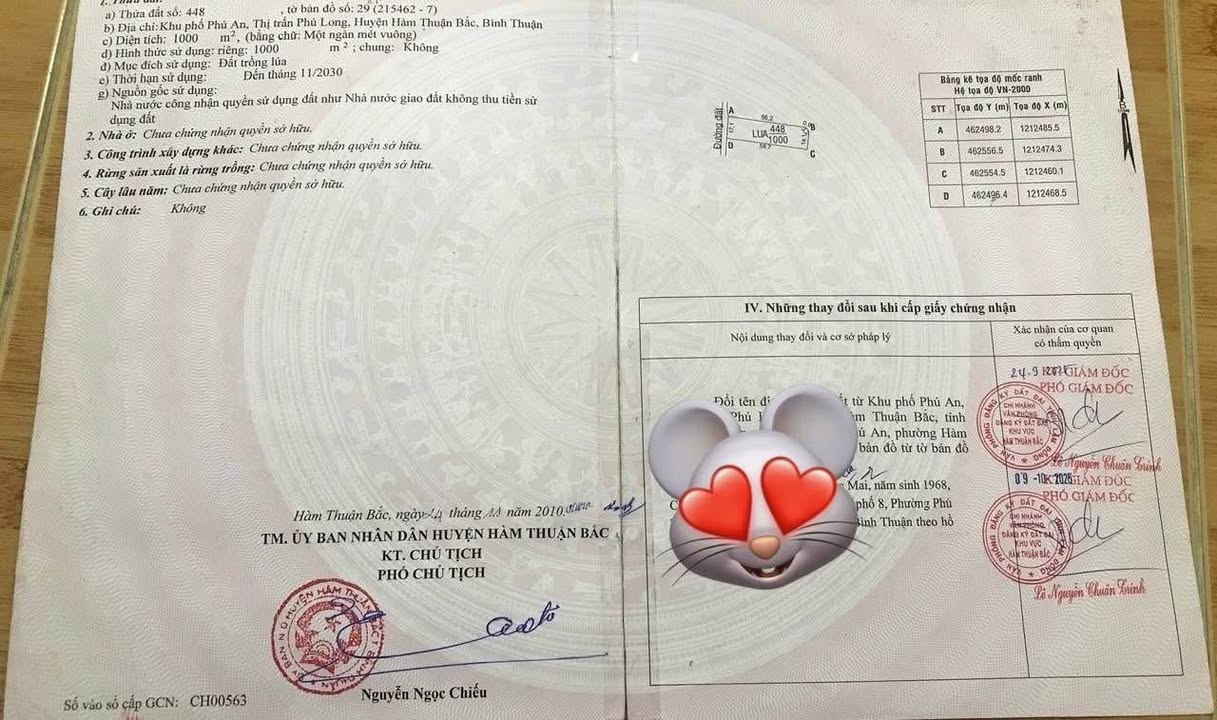 a) Thửa đất số: 448 , tờ bản đồ số: 29 (215462 - 7)
b) Địa chỉ: Khu phố Phú An, Thị trấn Phú Long, Huyện Hàm Thuận Bắc, Bình Thuận
c) Diện tích: 1000 m², (bằng chữ: Một ngàn mét vuông)
d) Hình thức sử dụng: riêng: 1000 m²; chung: Không
đ) Mục đích sử dụng: Đất trồng lúa
e) Thời hạn sử dụng: Đến tháng 11/2030
g) Nguồn gốc sử dụng:
Nhà nước công nhận quyền sử dụng đất như Nhà nước giao đất không thu tiền sử
dụng đất
2. Nhà ở: Chưa chứng nhận quyền sở hữu.
3. Công trình xây dựng khác: Chưa chứng nhận quyền sở hữu.
4. Rừng sản xuất là rừng trồng: Chưa chứng nhận quyền sở hữu.
5. Cây lâu năm: Chưa chứng nhận quyền sở hữu.
6. Ghi chú: Không
Hàm Thuận Bắc, ngày 24 tháng 11 năm 2010
TM. ỦY BAN NHÂN DÂN HUYỆN HÀM THUẬN BẮC
KT. CHỦ TỊCH
PHÓ CHỦ TỊCH
Nguyễn Ngọc Chiếu
Số vào sổ cấp GCN: CH00563
Đường đất
A
B
56,2
17,1
LUA 448
1000
D
C
Bảng kê tọa độ mốc ranh
Hệ tọa độ VN-2000
STT Tọa độ Y (m) Tọa độ X (m)
A 462498.2 1212485.5
B 462556.5 1212474.3
C 462554.5 1212460.1
D 462496.4 1212468.5
IV. Những thay đổi sau khi cấp giấy chứng nhận
Nội dung thay đổi và cơ sở pháp lý
Xác nhận của cơ quan
có thẩm quyền
Đổi tên từ Khu phố Phú An,
Phú Thuận Bắc, tỉnh
An, phường Hàm
bản đồ từ tờ bản đồ
Mai, năm sinh 1968,
phố 8, Phường Phú
Bình Thuận theo hồ
24-9 GIÁM ĐỐC
PHÓ GIÁM ĐỐC
CHI NHÁNH
VĂN PHÒNG
ĐĂNG KÝ ĐẤT ĐAI
KHU VỰC
HÀM THUẬN BẮC
Lê Nguyễn Chuẩn Trinh
09 -10- 2025 GIÁM ĐỐC
PHÓ GIÁM ĐỐC
CHI NHÁNH
VĂN PHÒNG
ĐĂNG KÝ ĐẤT ĐAI
KHU VỰC
HÀM THUẬN BẮC
Lê Nguyễn Chuẩn Trinh